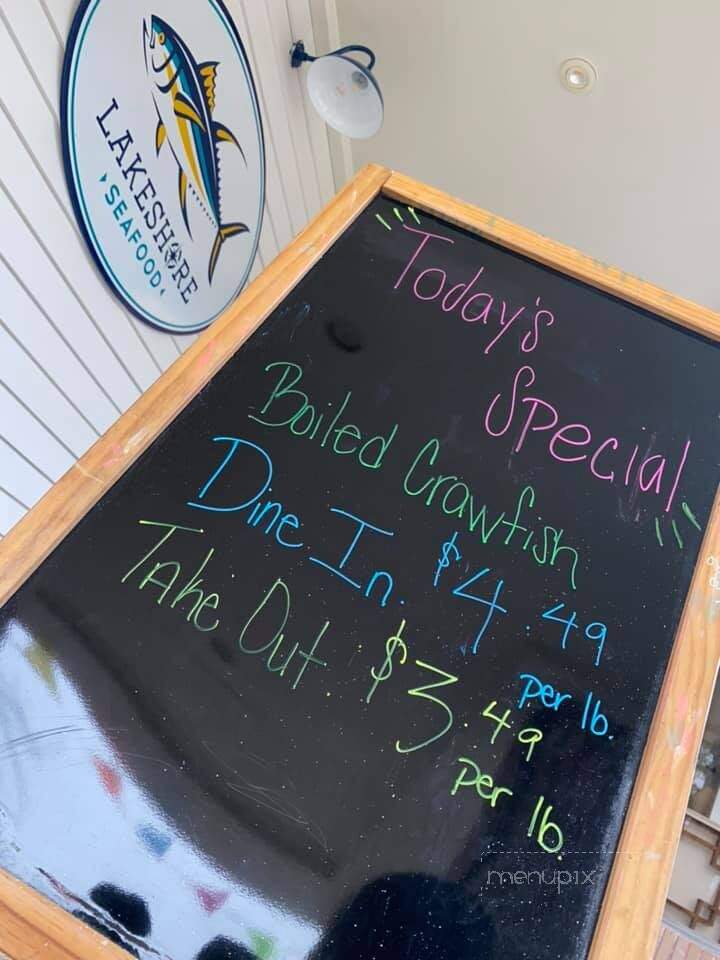 LAKESHORE
SEAFOOD
Today's
Special
Boiled Crawfish
Dine In $4.49
per lb.
Take Out $3.49
per lb.
menupix